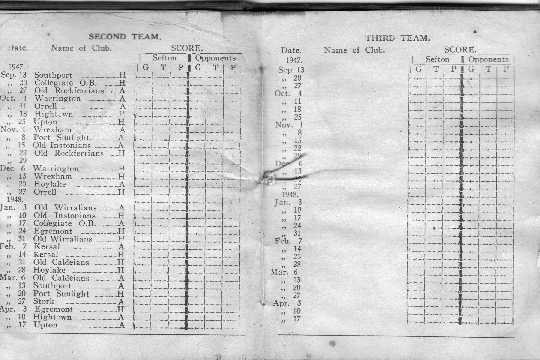 SECOND TEAM.
Date. Name of Club. SCORE.
Sefton Opponents
1947. G T P G T P
Sep. 13 Southport H
„ 20 Collegiate O.B. H
„ 27 Old Rockferrians A
Oct. 4 Warrington A
„ 11 Orrell A
„ 18 Hightown H
„ 25 Upton H
Nov. 1 Wrexham A
„ 8 Port Sunlight A
„ 15 Old Instonians A
„ 22 Old Rockferrians H
„ 29
Dec. 6 Warrington H
„ 13 Wrexham H
„ 20 Hoylake A
„ 27 Orrell H
1948.
Jan. 3 Old Wirralians A
„ 10 Old Instonians H
„ 17 Collegiate O.B. A
„ 24 Egremont H
„ 31 Old Wirralians H
Feb. 7 Kersal A
„ 14 Kersal H
„ 21 Old Caldeians H
„ 28 Hoylake H
Mar. 6 Old Caldeians A
„ 13 Southport A
„ 20 Port Sunlight H
„ 27 Stork A
Apr. 3 Egremont H
„ 10 Hightown A
„ 17 Upton A
THIRD TEAM.
Date. Name of Club. SCORE.
1947. Sefton Opponents
G T P G T P
Sep 13
„ 20
„ 27
Oct. 4
„ 11
„ 18
„ 25
Nov. 1
„ 8
„ 22
Dec. 6
„ 13
„ 27
1948.
Jan. 3
„ 10
„ 17
„ 24
„ 31
Feb. 7
„ 14
„ 21
„ 28
Mar. 6
„ 13
„ 20
„ 27
Apr. 3
„ 10
„ 17